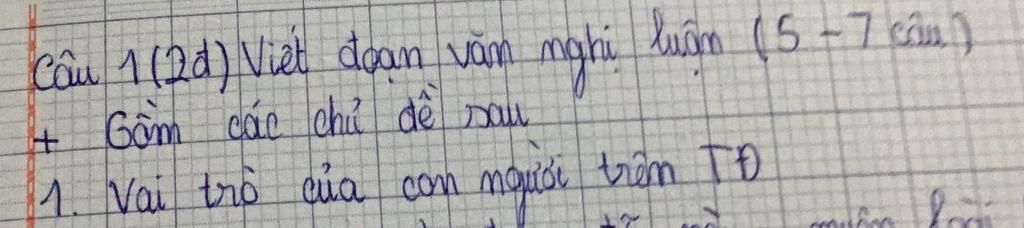 Câu 1(2đ) Viết đoạn văn nghị luận (5 - 7 câu)
+ Gồm các chủ đề sau
1. Vai trò của con người trên TĐ
muôn loài